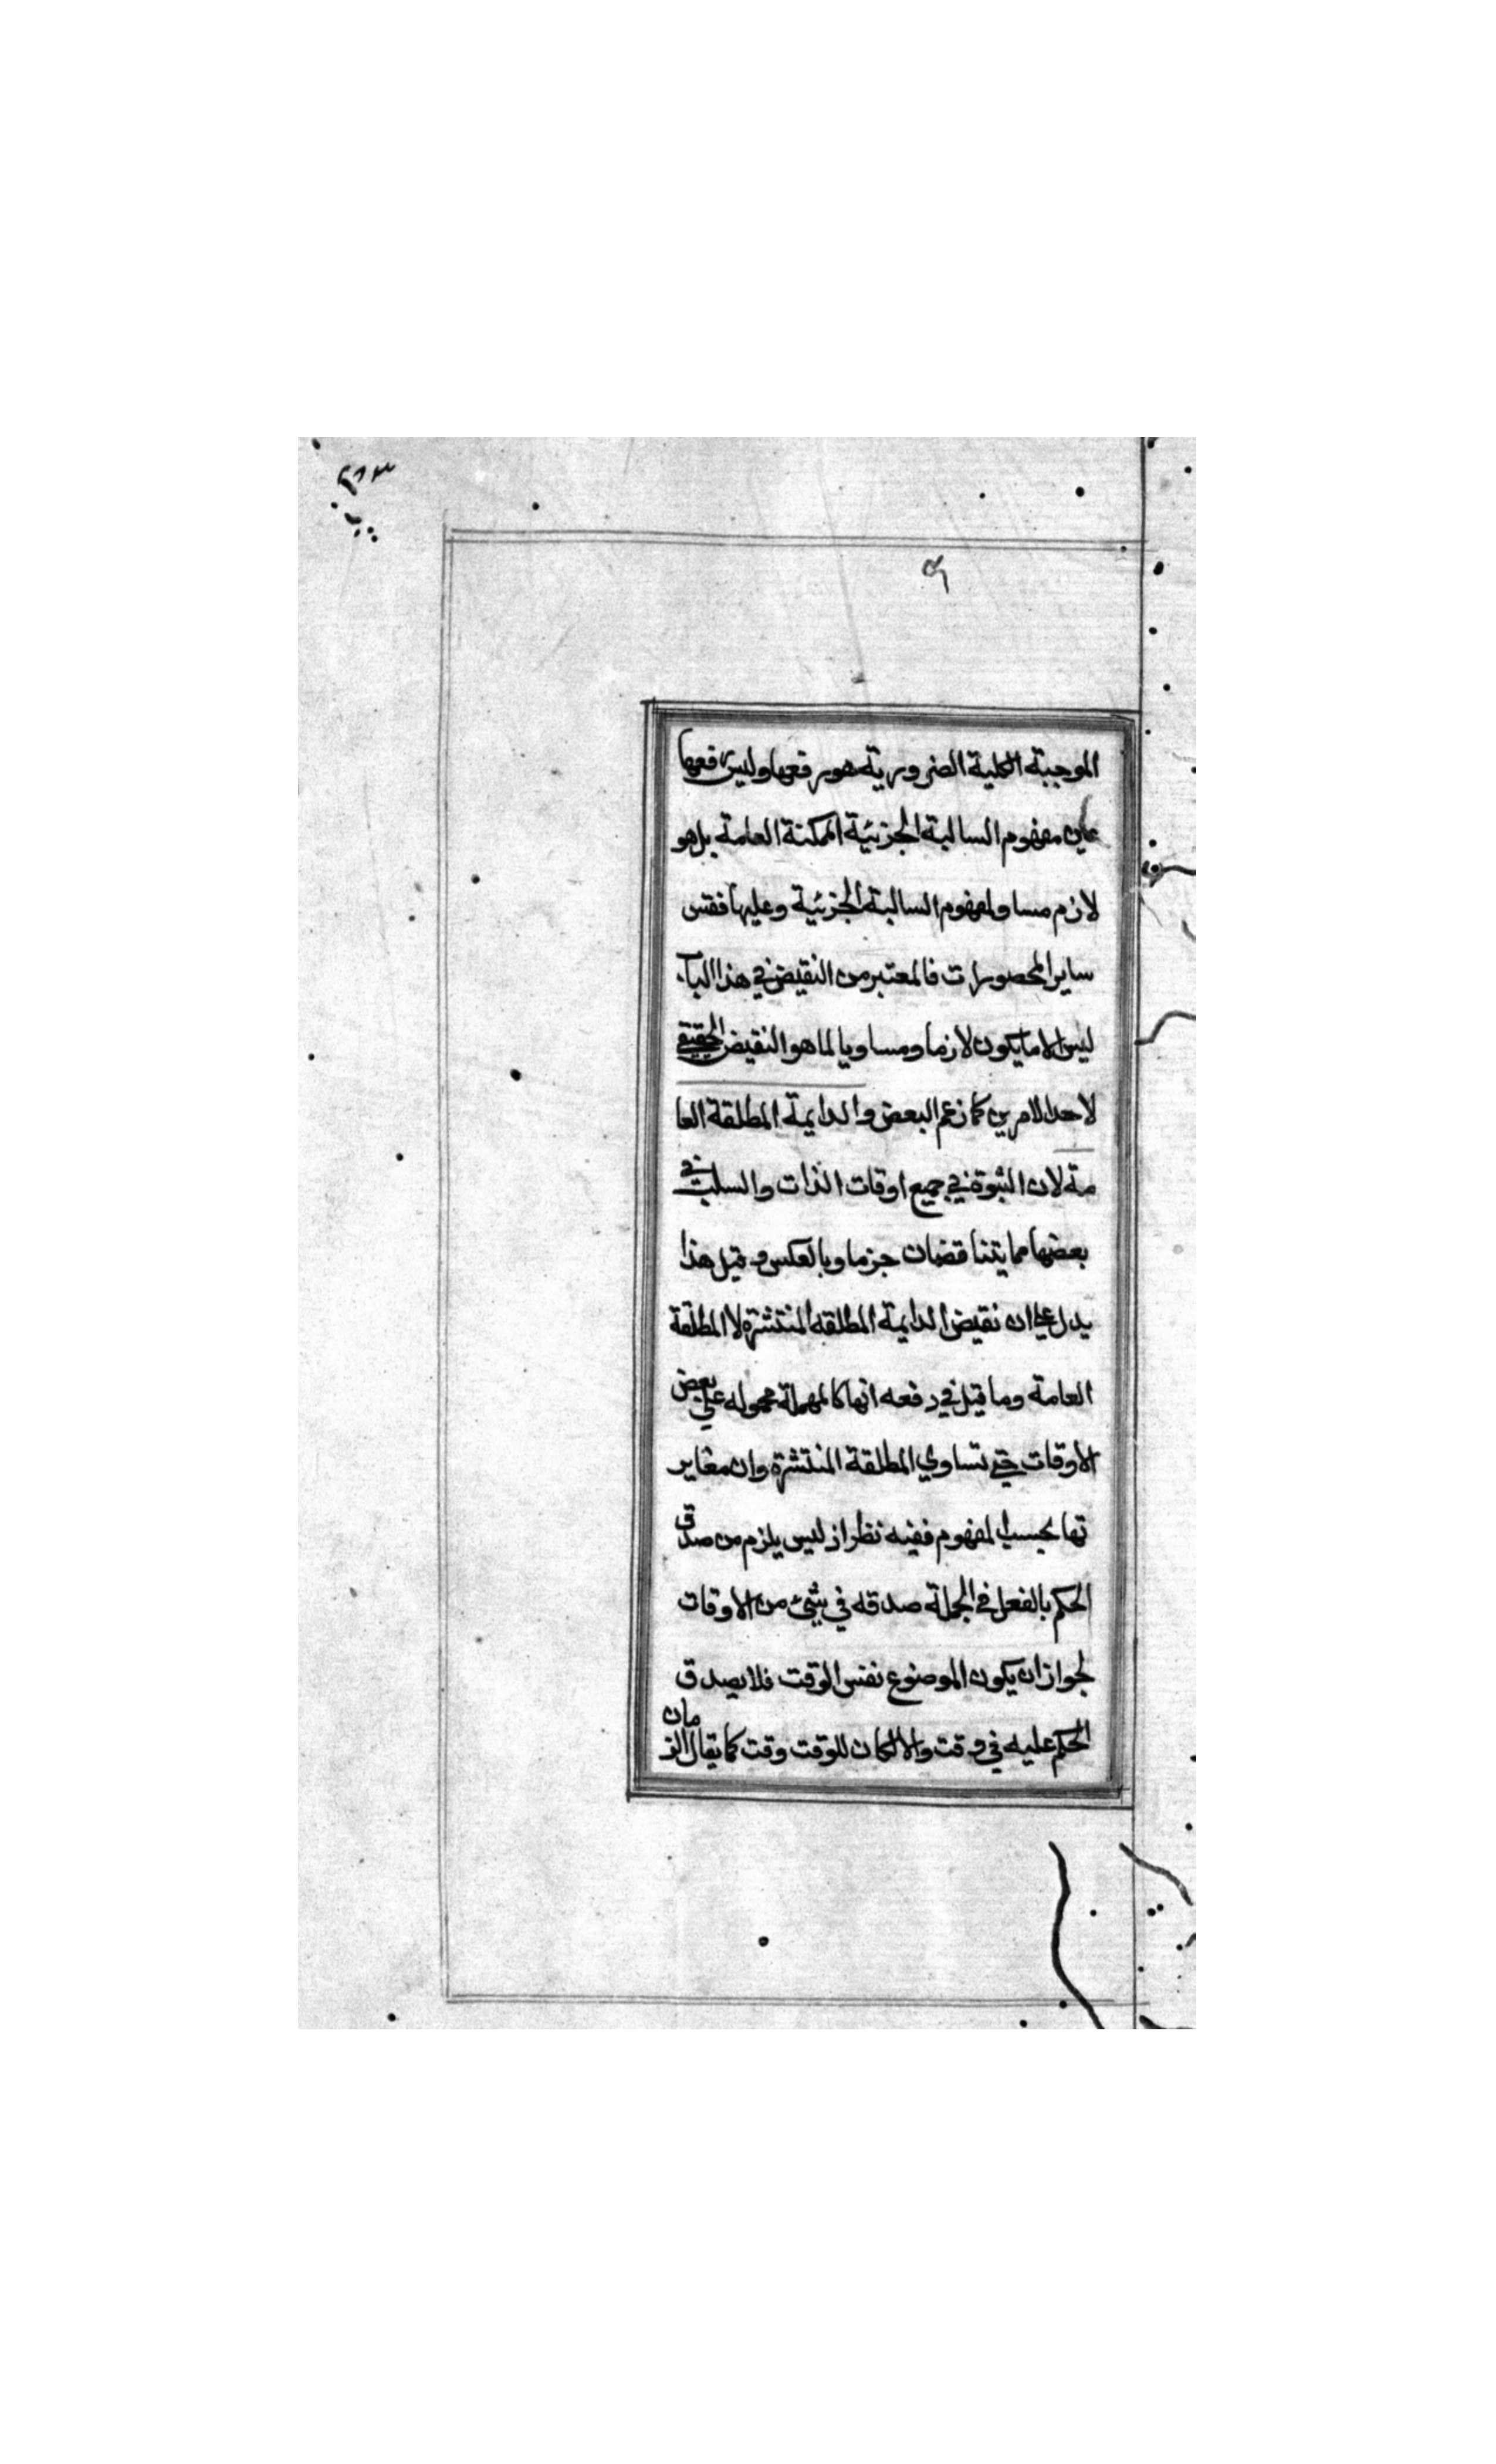 الموجبة الكلية الضرورية هو رفعها وليس رفعها
عين مفهوم السالبة الجزئية الممكنة العامة بل هو
لازم مساو لمفهوم السالبة الجزئية وعليها فقس
ساير المحصورات فالمعتبر من النقيض في هذا الباب
ليس الا ما يكون لازما ومساويا لما هو النقيض الحقيقي
لاحد الامرين كما زعم البعض والدايمة المطلقة العا
مة لان الثبوة في جميع اوقات الذات والسلب في
بعضها مما يتناقضان جزما وبالعكس وقيل هذا
يدل على ان نقيض الدايمة المطلقه المنتشرة لا المطلقة
العامة وما قيل في دفعه انها كالمهملة محموله على بعض
الاوقات حتى تساوي المطلقة المنتشرة وان مغاير
تها بحسب المفهوم ففيه نظر از ليس يلزم من صدق
الحكم بالفعل في الجملة صدقه في شيئ من الاوقات
لجواز ان يكون الموضوع نفس الوقت فلا يصدق
الحكم عليه في وقت والا لكان للوقت وقت كما يقال الزمان